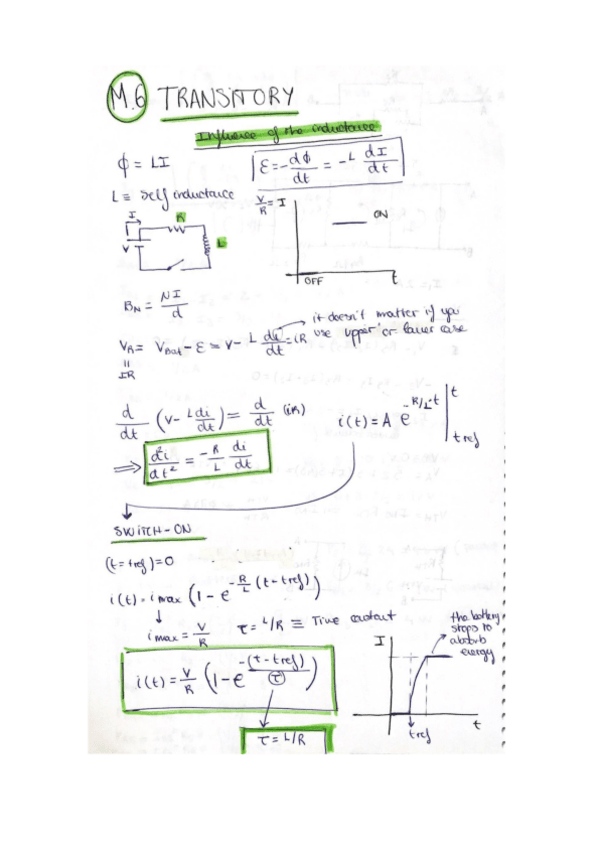 M.6 TRANSITORY
Influence of the inductance
ϕ = LI
ℰ = -dϕ/dt = -L dI/dt
L ≡ Self inductance
V/R = I
ON
I
R
V
L
OFF
t
B_N = NI/d
it doesn't matter if you
use upper or lower case
V_R = V_Bat - ℰ = V - L di/dt = iR
=
IR
d/dt (V - L di/dt) = d/dt (iR)
i(t) = A e^(-R/L·t) |t
tref
⟹ d²i/dt² = -R/L di/dt
SWITCH-ON
(t = tref) = 0
i(t) = i max (1 - e^(-R/L (t - tref)))
i max = V/R
τ = L/R ≡ Time constant
the battery
stops to
absorb
energy
I
i(t) = V/R (1 - e^(-(t - tref)/τ))
t
tref
τ = L/R